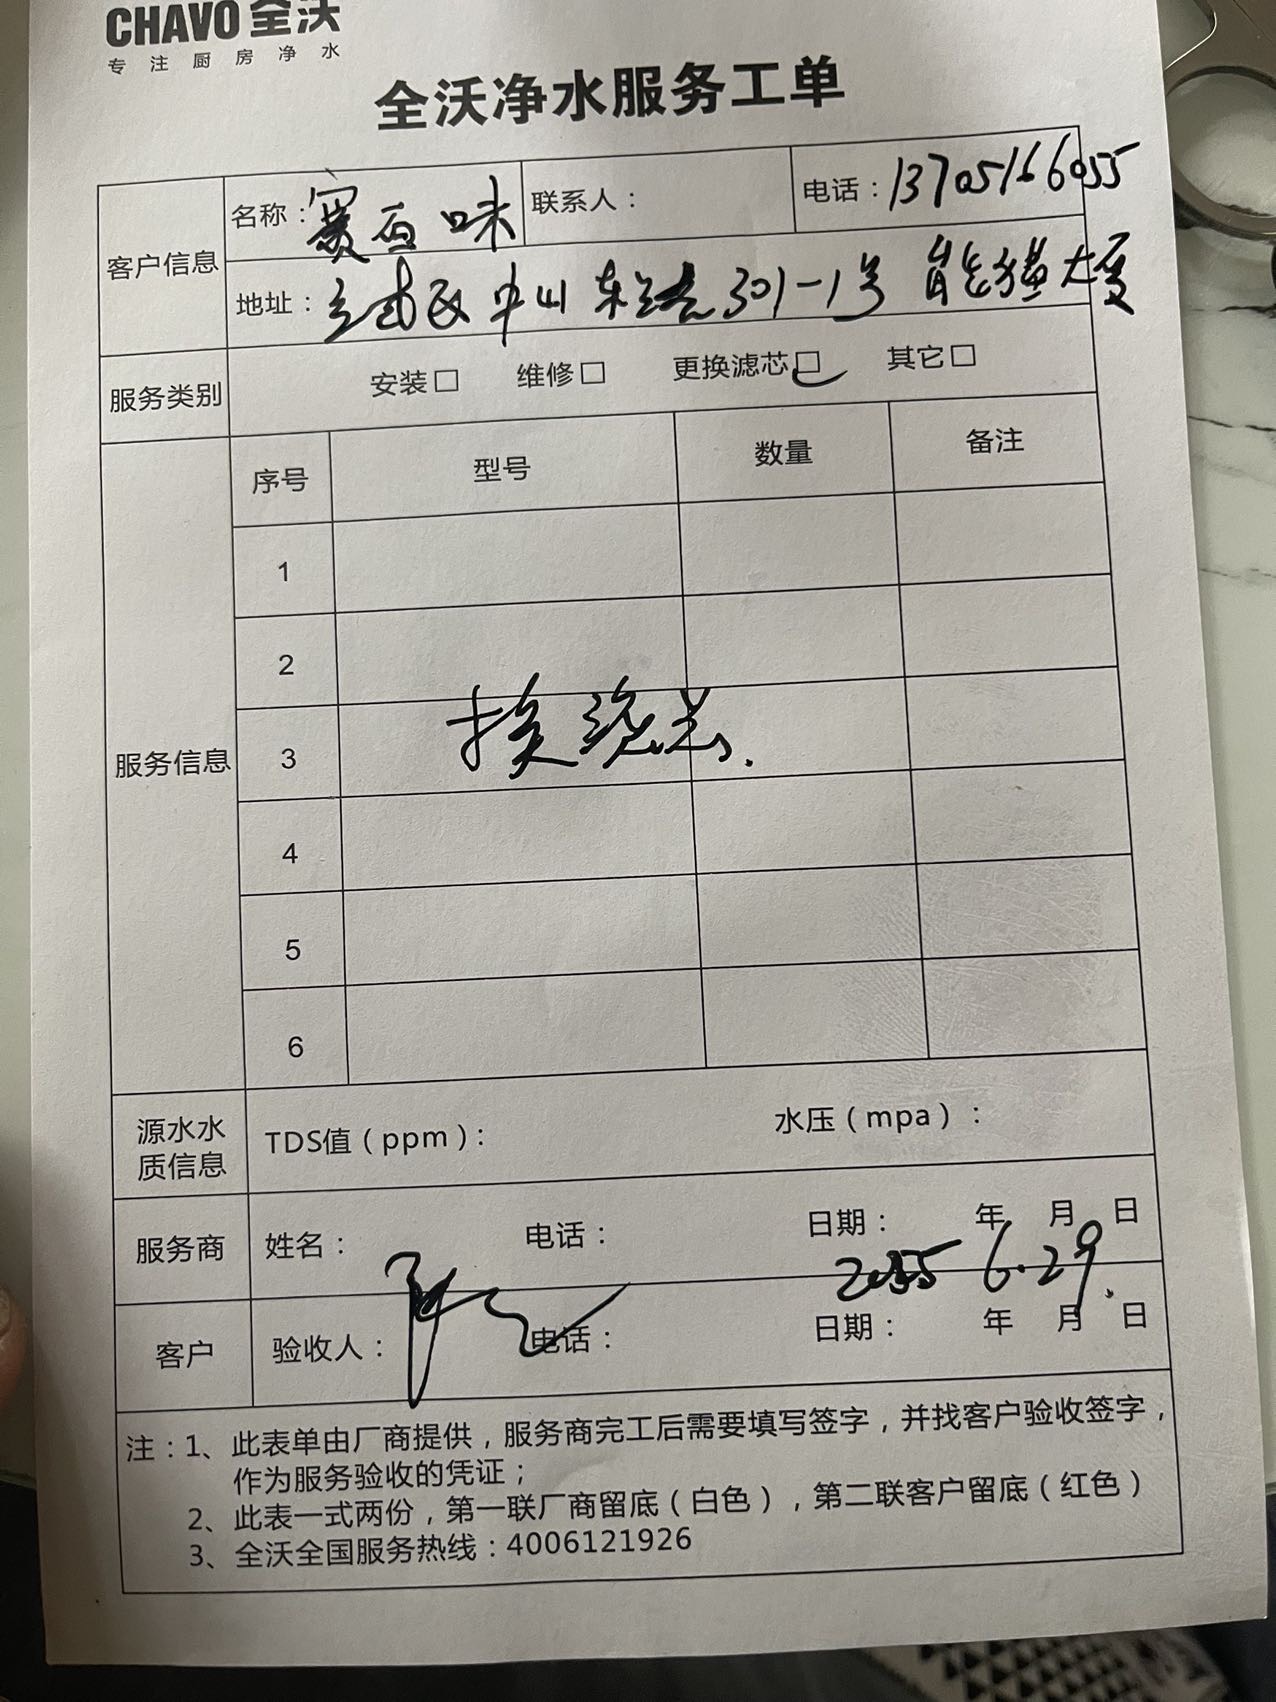 CHAVO 全沃
专注厨房净水
全沃净水服务工单
客户信息
名称：赛百味 联系人： 电话：13705166055
地址：玄武区中山东路301-1号 熊猫大厦
服务类别 安装□ 维修□ 更换滤芯□ 其它□
服务信息
序号 型号 数量 备注
1
2
3 换滤芯.
4
5
6
源水水质信息
TDS值（ppm）： 水压（mpa）：
服务商 姓名： 电话： 日期： 年 月 日
6.29.
客户 验收人： 电话： 日期： 年 月 日
注：1、此表单由厂商提供，服务商完工后需要填写签字，并找客户验收签字，
作为服务验收的凭证；
2、此表一式两份，第一联厂商留底（白色），第二联客户留底（红色）
3、全沃全国服务热线：4006121926